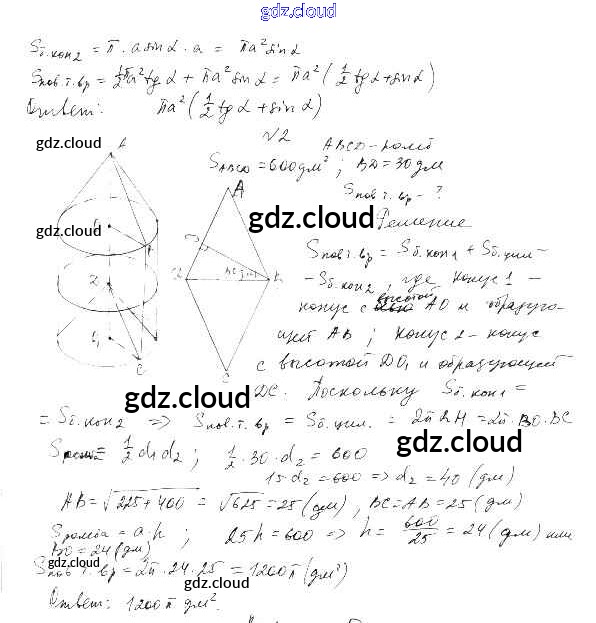 gdz.cloud
Sб.кон2 = π·a sinα·a = πa² sinα
Sпов.т.вр = ½πa² tgα + πa² sinα = πa²(½tgα + sinα)
Ответ: πa²(½tgα + sinα)
gdz.cloud
№2
ABCD - ромб
SABCD = 600 дм²; BD = 30 дм
Sпов.т.вр - ?
gdz.cloud
Решение
Sпов.т.вр = Sб.кон1 + Sб.цил -
- Sб.кон2, где конус 1 -
конус с высотой AO и образую-
щей AB; конус 2 - конус
с высотой DO1 и образующей
DC. Поскольку Sб.кон1 =
gdz.cloud
gdz.cloud
= Sб.кон2 => Sпов.т.вр = Sб.цил. = 2πRH = 2π·BO·BC
gdz.cloud
Sромба = ½d1d2; ½·30·d2 = 600
15·d2 = 600 => d2 = 40 (дм)
AB = √225+400 = √625 = 25 (дм), BC = AB = 25 (дм)
Sромба = a·h; 25h = 600 => h = 600/25 = 24 (дм) или
BO = 24 (дм)
Sпов.т.вр = 2π·24·25 = 1200π (дм²)
gdz.cloud
gdz.cloud
gdz.cloud
Ответ: 1200π дм².